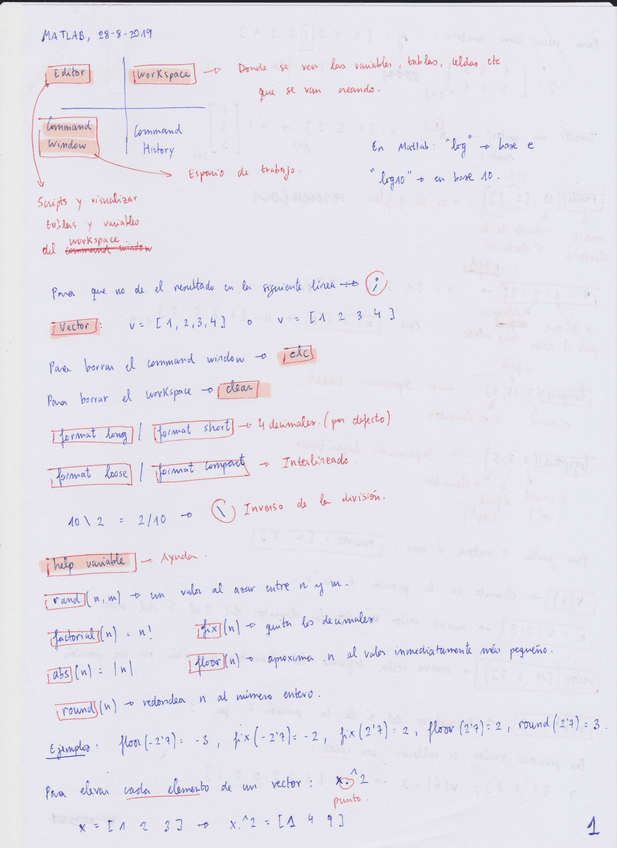 MATLAB, 28-8-2019
Editor
Workspace → Donde se ven las variables, tablas, celdas etc
que se van creando.
Command
Window
Command
History
En Matlab: "log" → base e
"log10" → en base 10.
Espacio de trabajo.
Scripts y visualizar
tablas y variables
workspace.
del command window
Para que no de el resultado en la siguiente línea → ;
Vector: v = [1,2,3,4] o v = [1 2 3 4]
Para borrar el command window → clc
Para borrar el workspace → clear
format long / format short → 4 decimales. (por defecto)
format loose / format compact → Interlineado.
10 \ 2 = 2/10 → \ Inverso de la división.
help variable → Ayuda.
rand (n,m) → un valor al azar entre n y m.
factorial (n) = n! fix (n) → quita los decimales.
abs (n) = |n| floor (n) → aproxima n al valor inmediatamente más pequeño.
round (n) → redondea n al número entero.
Ejemplos: floor(-2'7) = -3, fix(-2'7) = -2, fix(2'7) = 2, floor(2'7) = 2, round(2'7) = 3.
Para elevar cada elemento de un vector: x.^2
punto.
x = [1 2 3] → x.^2 = [1 4 9]
1